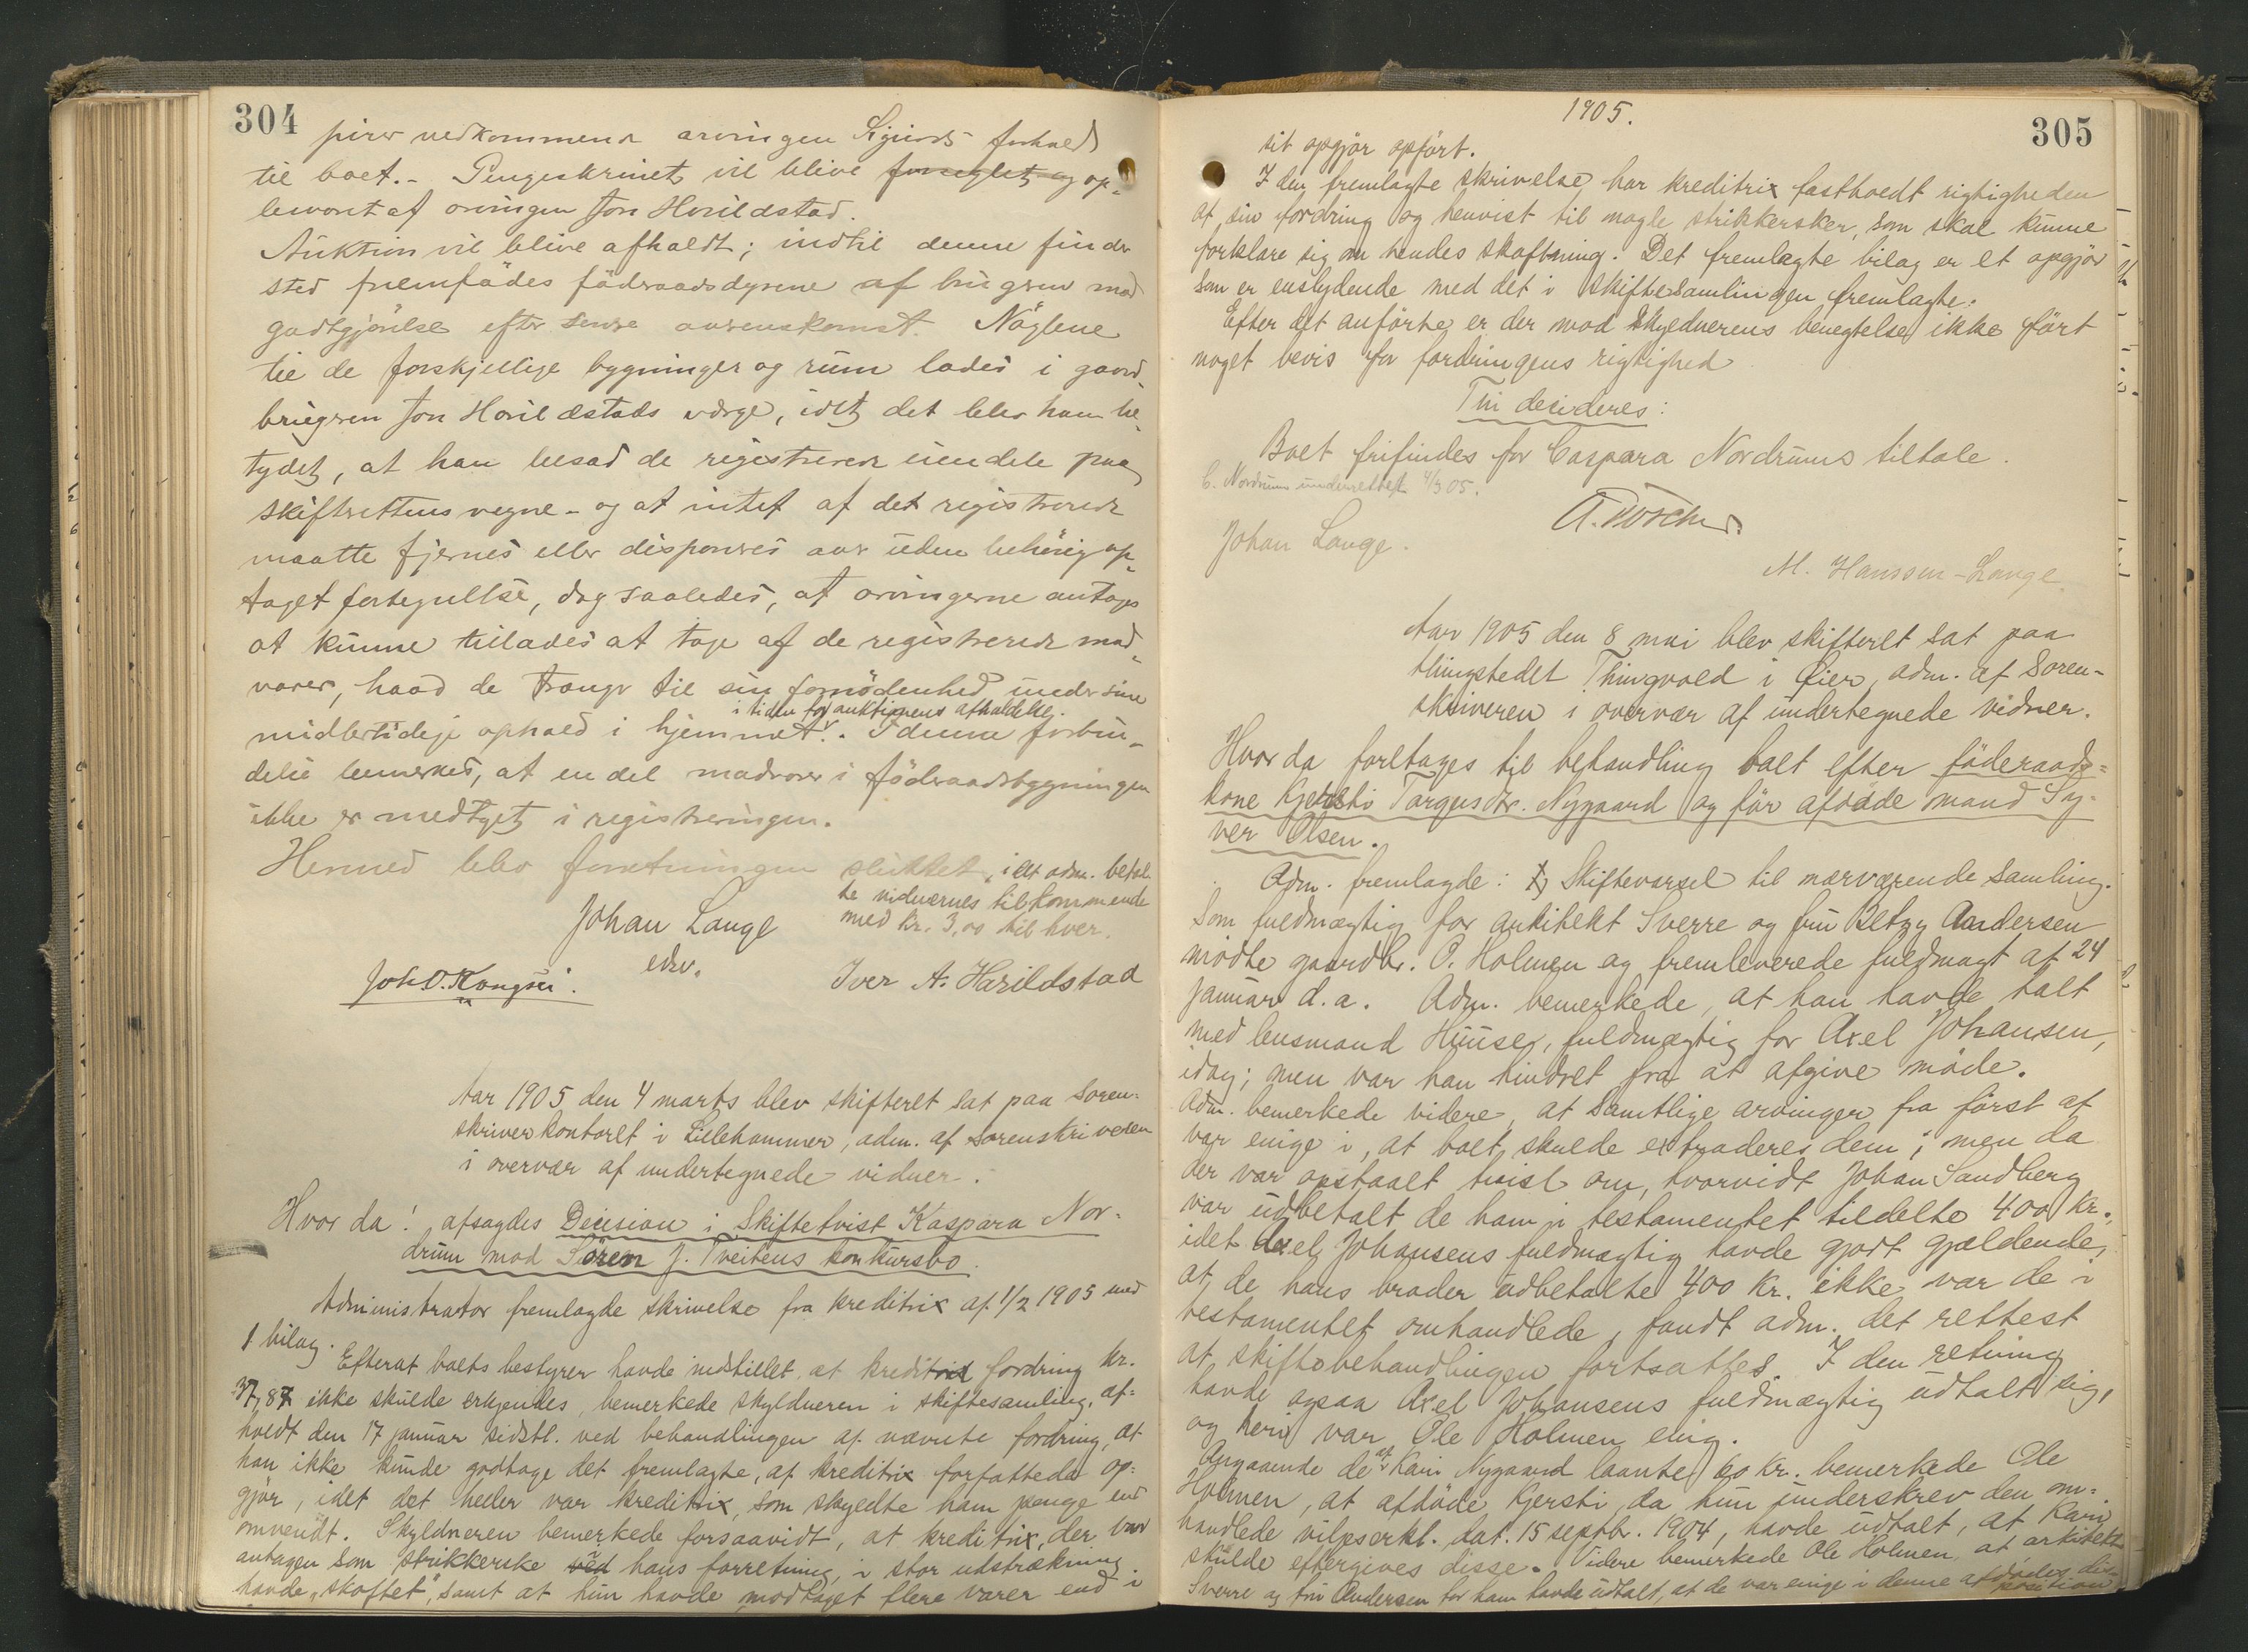 304
pirer vedkommende arvingen Sigurds forhold
til boet. - Pengeskrinet vil blive forseglet og op-
bevaret af arvingen Jon Horildstad.
Auktion vil blive afholdt; indtil denne finder
sted fremfødes föderaadsdyrene af brugeren mod
godtgjörelse efter senere overenskomst. Nöglene
til de forskjellige bygninger og rum lodes i gaard-
brugeren Jon Horildstads værge, idet det blev ham be-
tydet, at han besad de registrerede eiendele paa
skifterettens vegne - og at intet af det registrerede
maatte fjernes eller disponeres over uden behörig op-
taget fortegnelse, dog saaledes, at arvingerne antages
at kunne tillades at tage af de registrerede mad-
varer, hvad de trænger til sin fornödenhed under sine
i tiden før auktionens afholdelse.
midlertidige ophold i hjemmet. I denne forbin-
delse bemerkes, at en del madvarer i föderaadsbygningen
ikke er medtaget i registreringen.
Hermed blev forretningen sluttet, idet adm. betal-
te vidnernes tilkommende
med kr. 3,00 til hver.
Johan Lange
edsv.
Joh. O. Kongsli.
Iver A. Harildstad
Aar 1905 den 4 marts blev skifteret sat paa soren-
skriverkontoret i Lillehammer, adm. af sorenskriveren
i overvær af undertegnede vidner.
Hvor da! afsagdes Decision i Skiftetvist Kaspara Nor-
drum mod Sören J. Tveitens konkursbo.
Administrator fremlagde skrivelse fra kreditrix af 1/2 1905 med
1 bilag.
Efterat boets bestyrer havde indstillet, at kreditrix fordring kr.
37,87 ikke skulde erkjendes, bemerkede skyldneren i skiftesamling, af-
holdt den 17 januar sidstl. ved behandlingen af nævnte fordring, at
han ikke kunde godtage det fremlagte, af kreditrix forfattede op-
gjör, idet det heller var kreditrix, som skyldte ham penge end
omvendt. Skyldneren bemerkede forsaavidt, at kreditrix, der var
antagen som strikkerske ved hans forretning, i stor udstrækning
havde "skoftet", samt at hun havde modtaget flere varer end i
1905.
305
sit opgjör opfört.
I den fremlagte skrivelse har kreditrix fastholdt rigtigheden
af sin fordring og henvist til nogle strikkersker, som skal kunne
forklare sig om hendes skoftning. Det fremlagte bilag er et opgjör
som er enslydende med det i skiftesamlingen fremlagte.
Efter det anförte er der mod skyldnerens benegtelse ikke fört
noget bevis for fordringens rigtighed
Thi decideres:
Boet frifindes for Caspara Nordrums tiltale.
C. Nordrum underrettet 4/3 05.
Johan Lange.
M. Hanssen-Lange
Aar 1905 den 8 mai blev skifteret sat paa
thingstedet Thingvold i Øier, adm. af Soren-
skriveren i overvær af undertegnede vidner.
Hvor da foretages til behandling boet efter föderaads-
kone Kjersti Targusdtr. Nygaard og för afdöde mand Sy-
ver Olsen.
Adm. fremlagde: 1) Skiftevarsel til nærværende samling.
Som fuldmægtig for arkitekt Sverre og fru Betzy Andersen
mödte gaardbr. O. Holmen og fremleverede fuldmagt af 24
januar d.a. Adm. bemerkede, at han havde talt
med lensmand Huuse, fuldmægtig for Axel Johansen,
idag; men var han hindret fra at afgive möde.
Adm. bemerkede videre, at samtlige arvinger fra först af
var enige i, at boet skulde extraderes dem; men da
der var opstaaet tvist om, hvorvidt Johan Sandberg
var udbetalt de ham i testamentet tildelte 400 kr.,
idet Axel Johansens fuldmægtig havde gjort gjældende,
at de hans broder udbetalte 400 kr. ikke var de i
testamentet omhandlede, fandt adm. det rettest
at skiftebehandlingen fortsattes. I den retning
havde ogsaa Axel Johansens fuldmægtig udtalt sig,
og heri var Ole Holmen enig.
Angaaende de af Kari Nygaard laante 60 kr. bemerkede Ole
Holmen, at afdöde Kjersti, da hun underskrev den om-
handlede viljeserkl. dat. 15 septbr. 1904, havde udtalt, at Kari
skulde eftergives disse. Videre bemerkede Ole Holmen, at arkitekt
Sverre og fru Andersen for ham havde udtalt, at de var enige i denne afdödes dis-
position